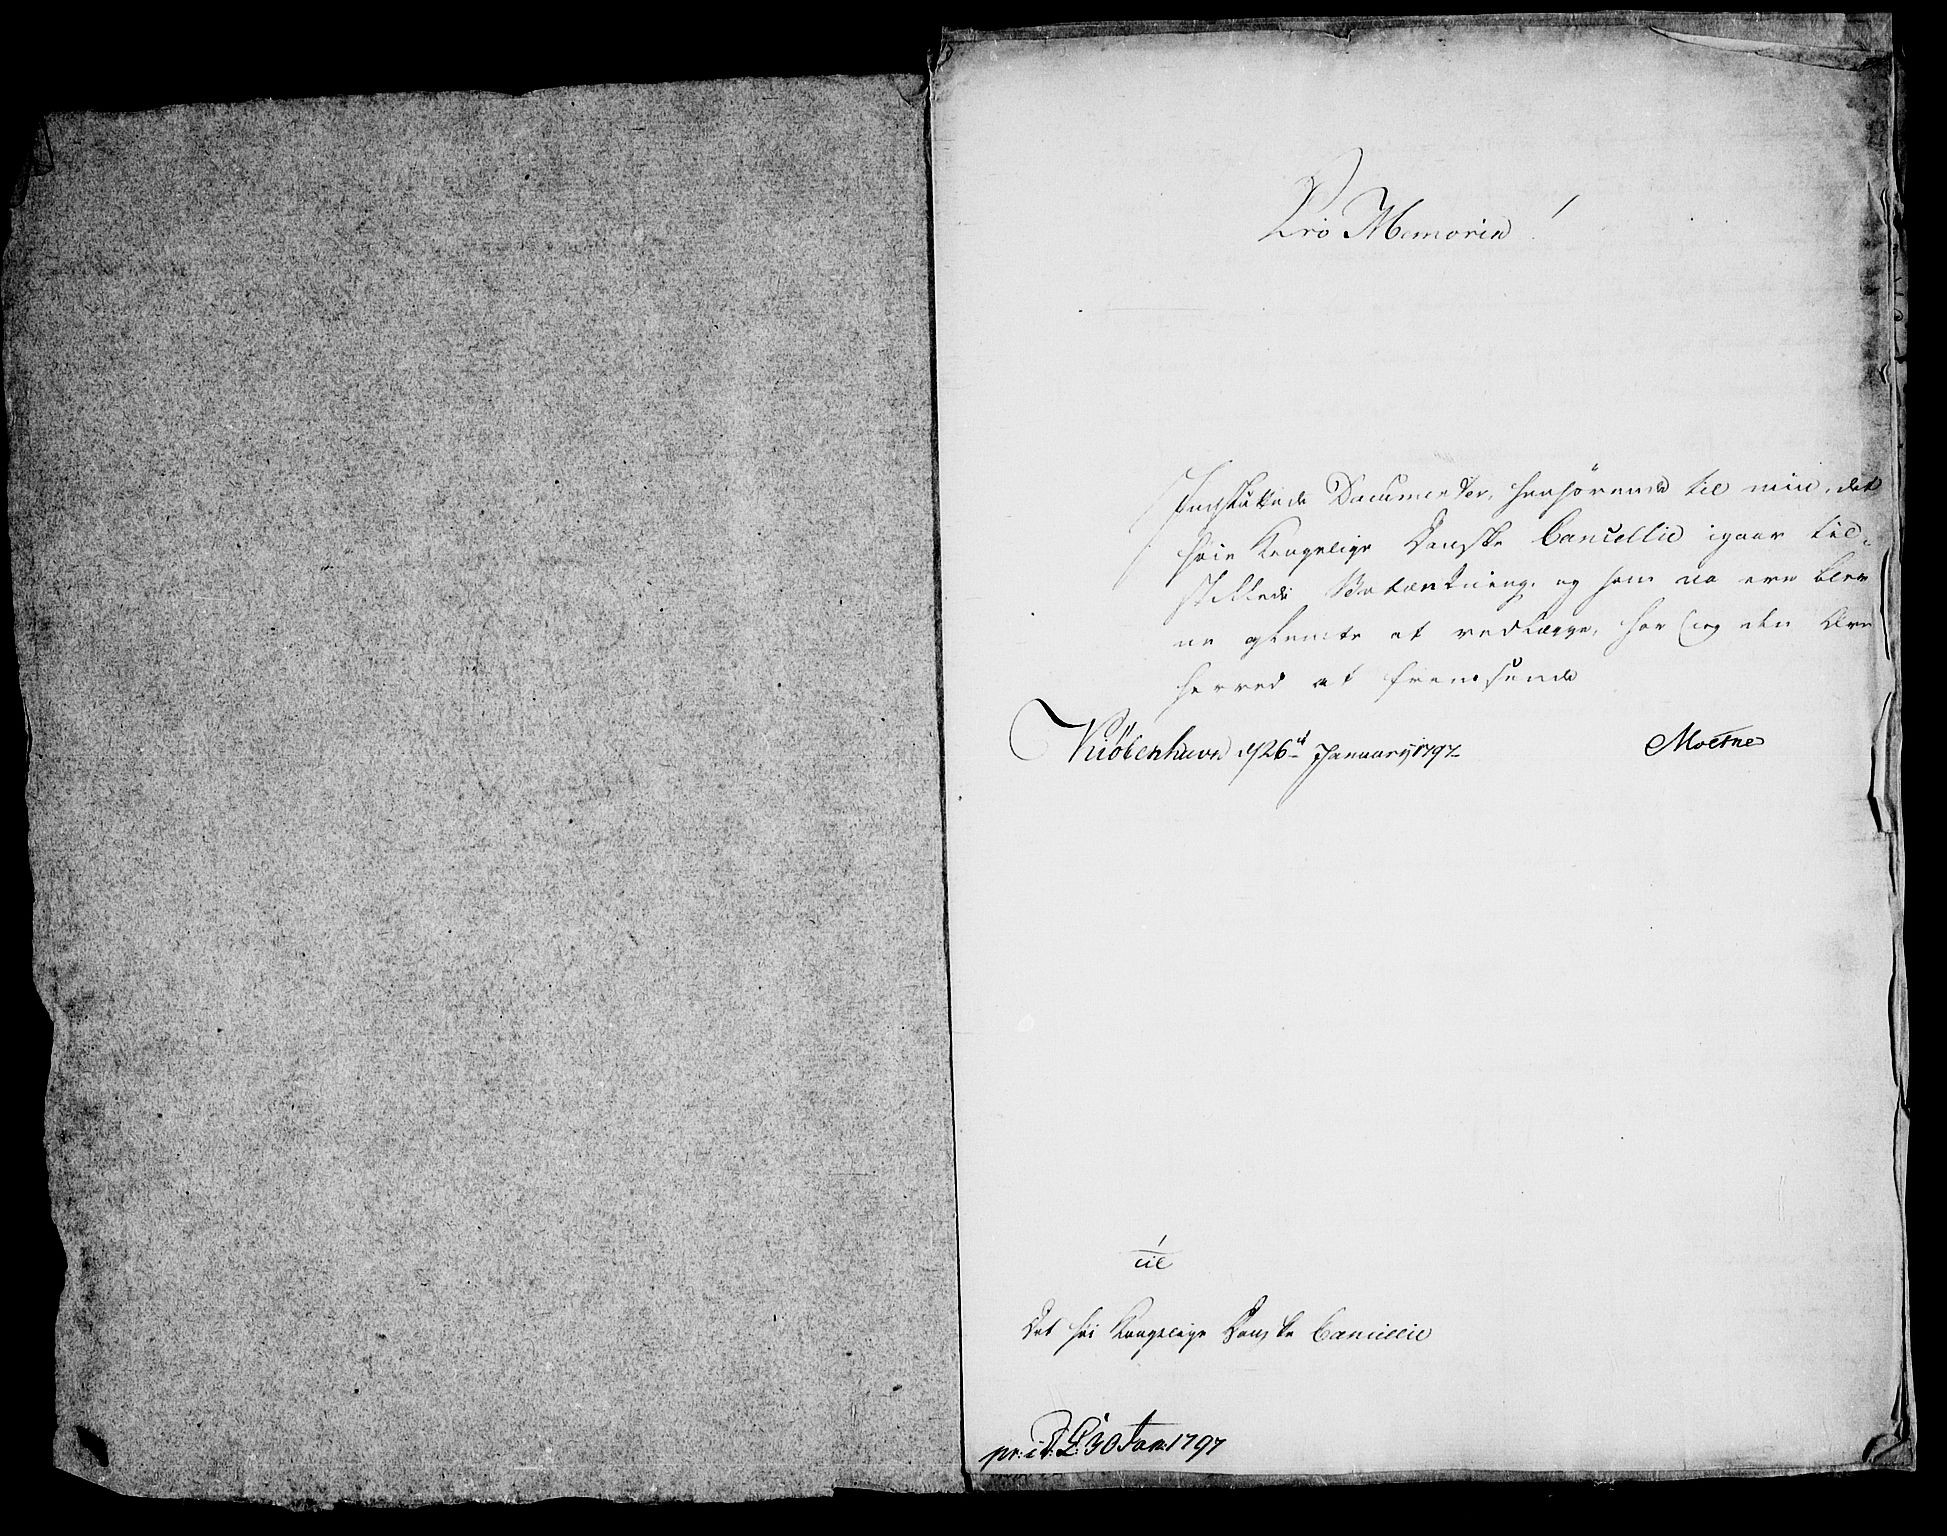 Pro Memoria!
Indstukkede Documenter, henhörende til min, det
höie Kongelige Danske Cancellie igaar til-
stillede Betænkning, og som da ere blev
ne glemte at vedlægge, har jeg den Ære
herved at fremsende
Kiöbenhavn d/26d January 1797
Moesne
Til
Det höi Kongelige Danske Cancellie
pr: i d: L: 30 Jan: 1797